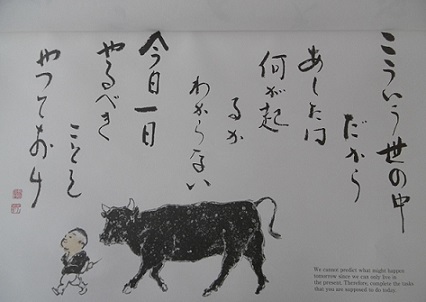 こういう世の中
だから
あしたは
何が起
るか
わからない
今日一日
やるべき
ことを
やっておけ
We cannot predict what might happen
tomorrow since we can only live in
the present. Therefore, complete the tasks
that you are supposed to do today.